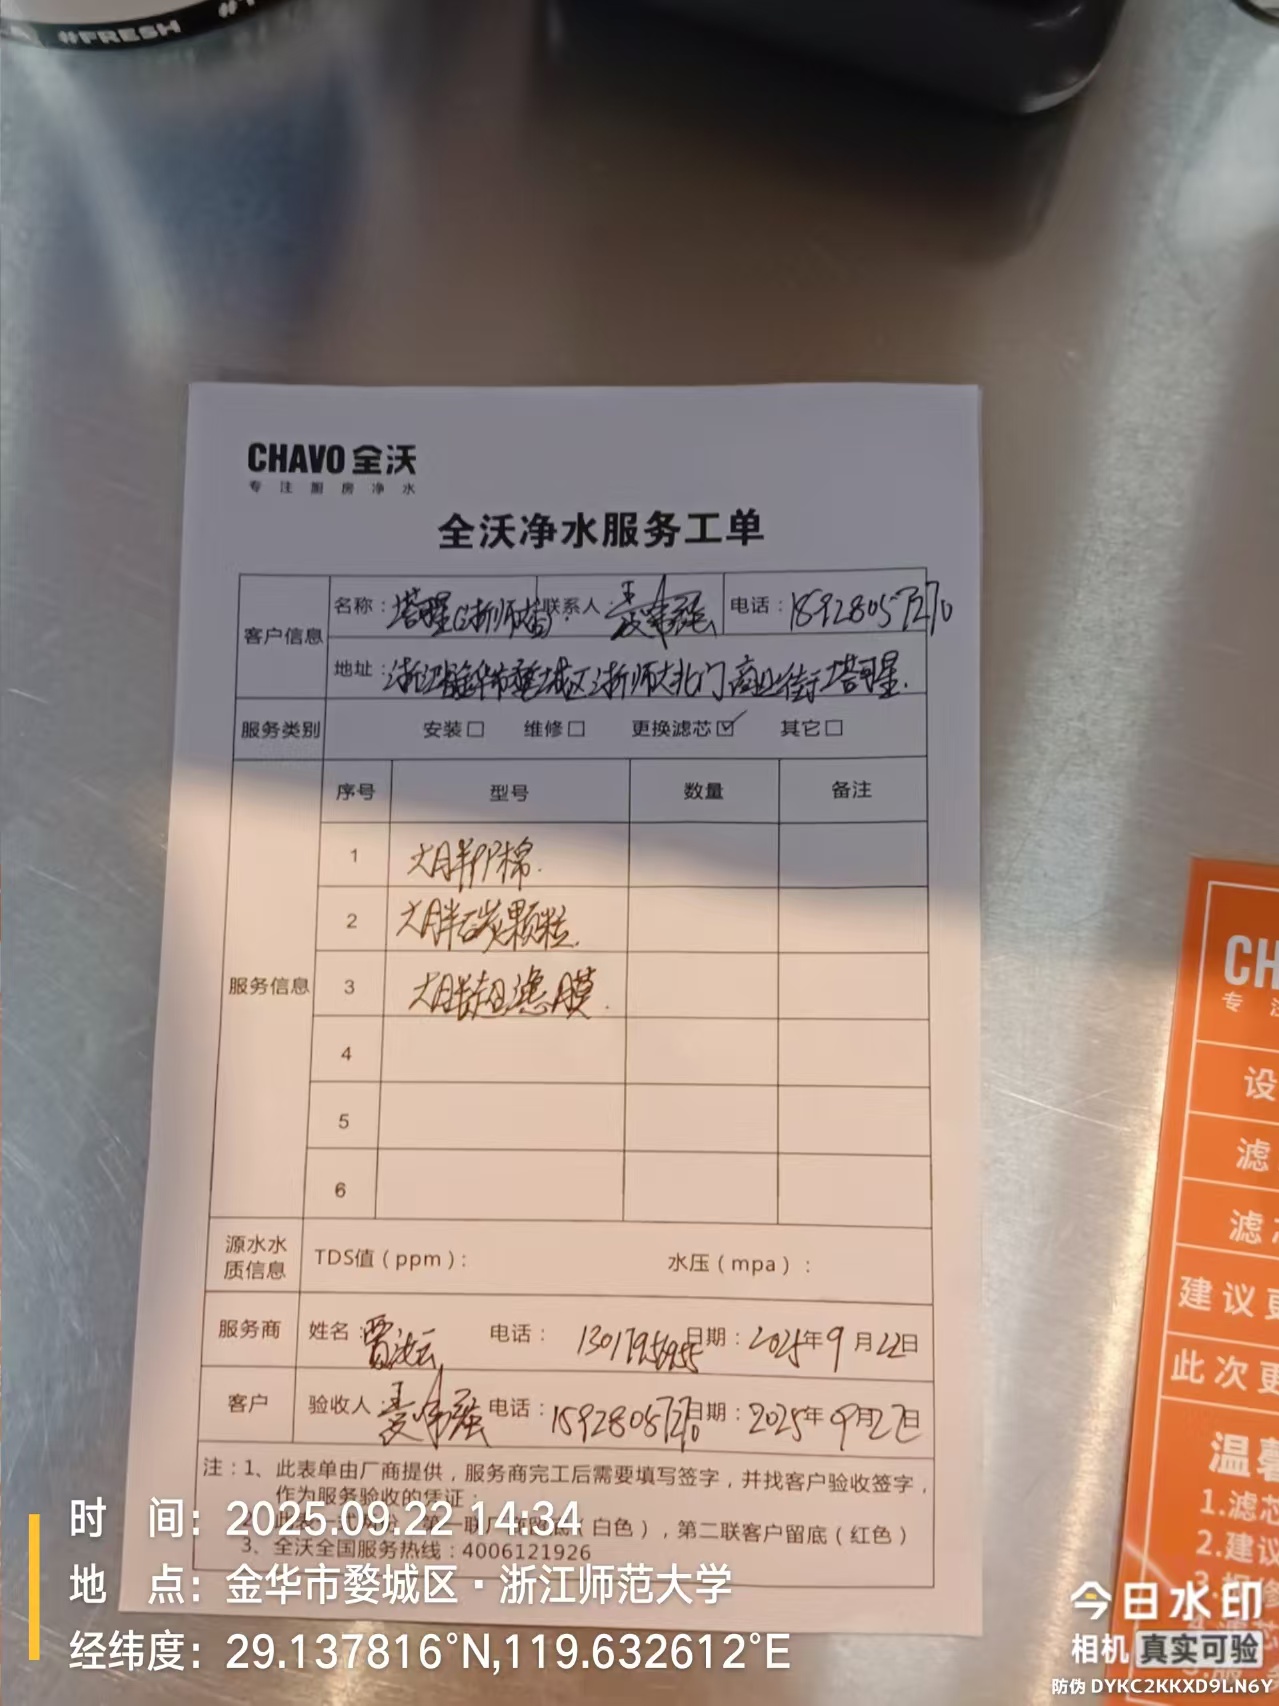 #FRESH
CHAVO 全沃
专注厨房净水
全沃净水服务工单
客户信息 名称：塔斯汀(浙师大店) 联系人 电话：15928057270
地址：浙江金华市婺城区浙师大北门商业街塔斯汀.
服务类别 安装□ 维修□ 更换滤芯☑ 其它□
服务信息 序号 型号 数量 备注
1 大胖PP棉.
2 大胖碳颗粒.
3 大胖超滤膜.
4
5
6
源水水质信息 TDS值（ppm）： 水压（mpa）：
服务商 姓名：贾 电话： 日期：2025年9月22日
客户 验收人 电话：15928057270 日期：2025年9月22日
注：1、此表单由厂商提供，服务商完工后需要填写签字，并找客户验收签字，
作为服务验收的凭证；
（白色），第二联客户留底（红色）
3、全沃全国服务热线：4006121926
时 间：2025.09.22 14:34
地 点：金华市婺城区·浙江师范大学
经纬度：29.137816°N,119.632612°E
CH
专 注
设
滤
滤
建议更
此次更
温馨
1.滤芯
2.建议
今日水印
相机 真实可验
防伪 DYKC2KKXD9LN6Y